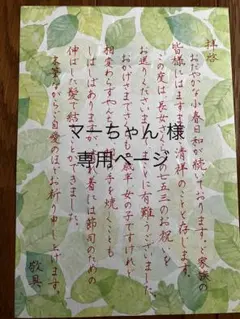 拝啓
おだやかな小春日和が続いております。ご家族の
皆様にはますますご清祥のことと存じます。
この度は長女
の七五三のお祝いを
お送りくださいまし
とに有難うございました。
おかげさまで
歳
女の子ですけれど
相変わらずやん
手を焼くことも
しばしばありますが
着には節句のための
伸ばした髪で結
ことができました。
末筆ながらご自愛のほどお祈り申し上げます。
敬具
マーちゃん 様
専用ページ